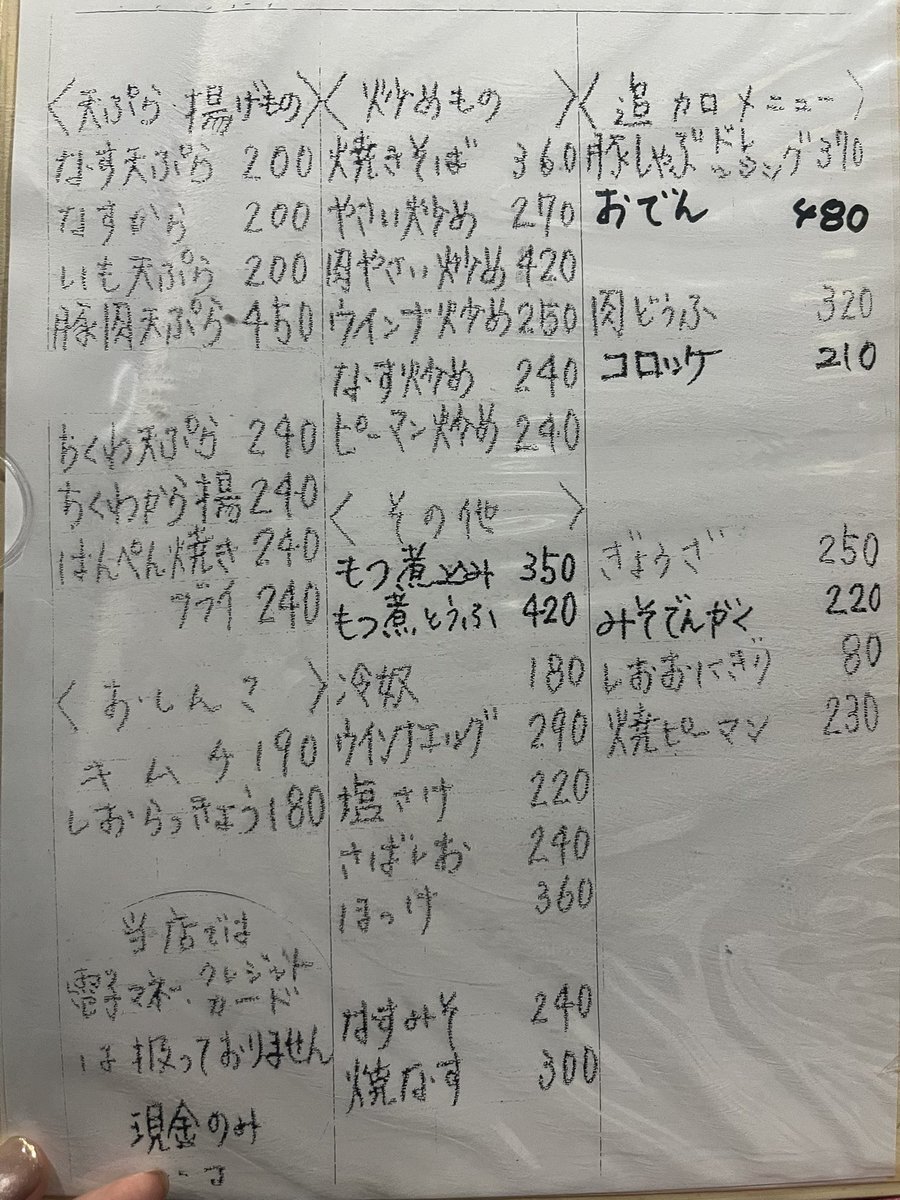 〈天ぷら 揚げもの〉
なす天ぷら 200
なすから 200
いも天ぷら 200
豚肉天ぷら 450
ちくわ天ぷら 240
ちくわから揚 240
はんぺん焼き 240
フライ 240
〈おしんこ〉
キムチ 190
しおらっきょう 180
当店では
電子マネー、クレジットカード
は扱っておりません
現金のみ
〈炒めもの〉
焼きそば 360
やさい炒め 270
肉やさい炒め 420
ウインナ炒め 250
なす炒め 240
ピーマン炒め 240
〈その他〉
もつ煮込み 350
もつ煮とうふ 420
冷奴 180
ウインナエッグ 290
塩さけ 220
さばしお 240
ほっけ 360
なすみそ 240
焼なす 300
〈追加メニュー〉
豚しゃぶドレッシング 370
おでん 480
肉どうふ 320
コロッケ 210
ぎょうざ 250
みそでんがく 220
しおおにぎり 80
焼ピーマン 230